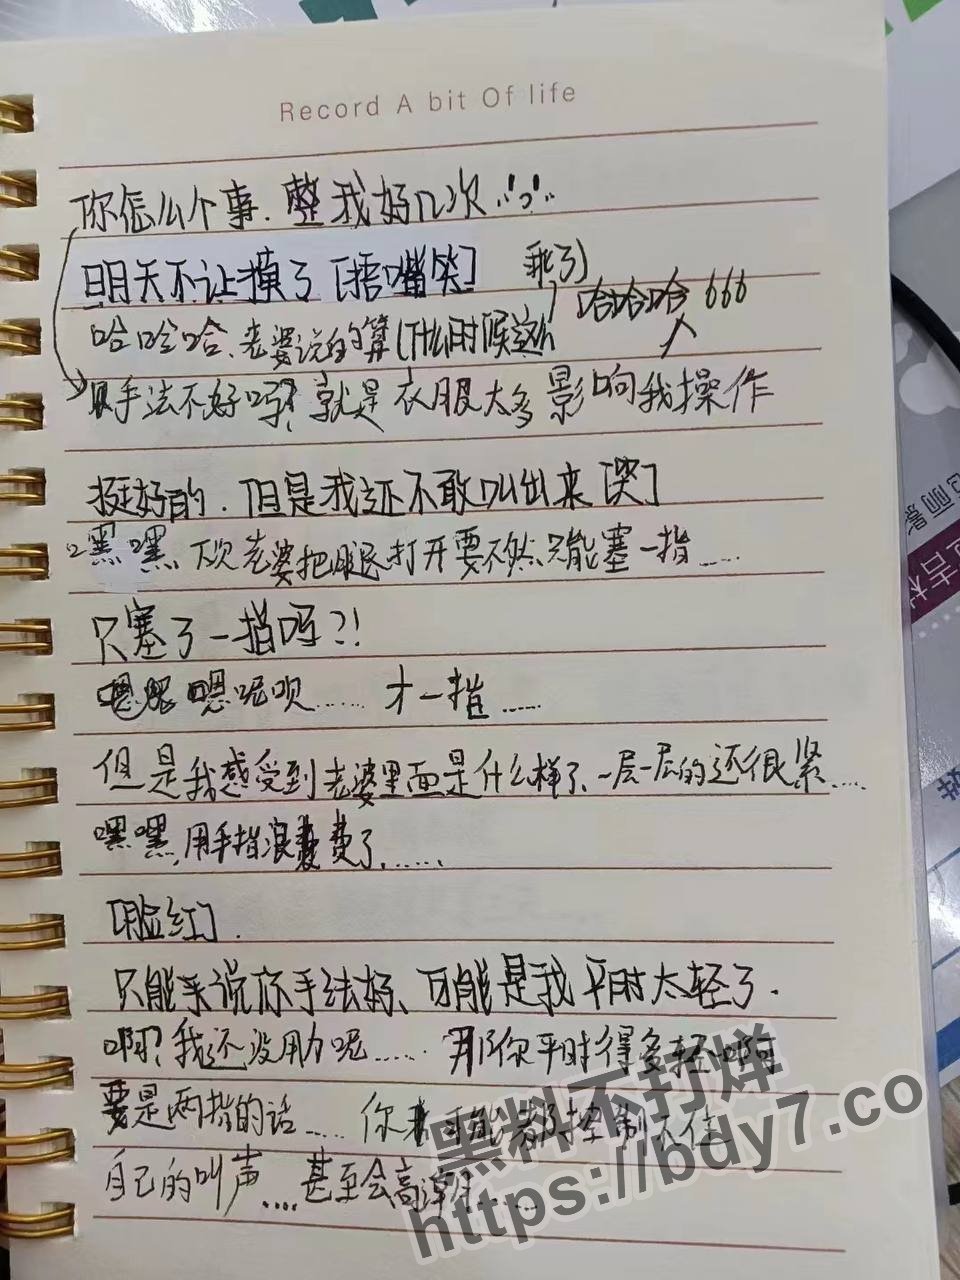 Record A bit Of life
你怎么个事.整我好几次
明天不让摸了[捂嘴笑] 乖了)
哈哈哈 666
哈哈哈、老婆说的算(什么时候这么
手法不好吗?就是衣服太多影响我操作
挺好的.但是我还不敢叫出来[哭]
嘿嘿 下次老婆把腿打开要不然只能塞一指……
只塞了一指吗?!
嗯嗯嗯呢呗…… 才一指……
但是我感受到老婆里面是什么样了、一层一层的还很紧……
嘿嘿,用手指浪费了……
[脸红].
只能来说你手法好、可能是我平时太轻了.
啊?我还没用力呢…… 那你平时得多轻啊
要是两指的话…… 你可能都控制不住
自己的叫声…… 甚至会高潮……
黑料不打烊
https://bdy7.co